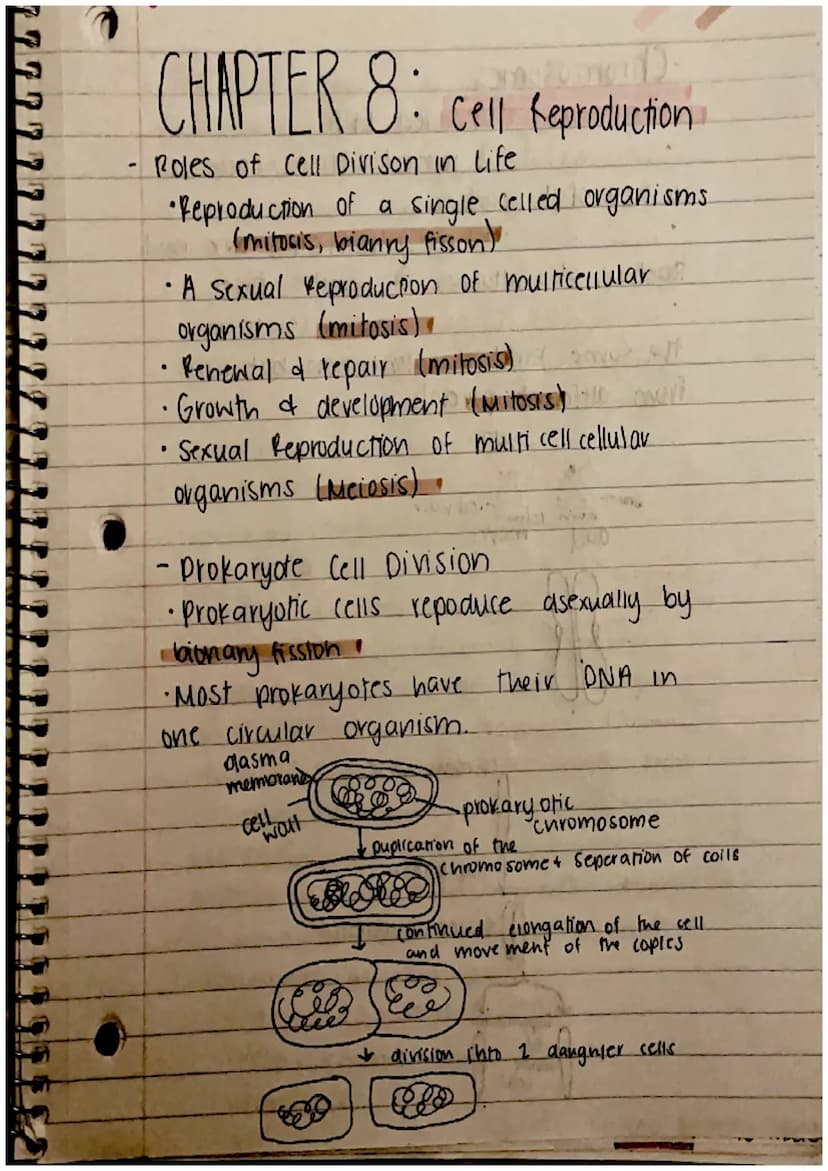 CHAPTER 8: Cell Reproduction
- Roles of Cell Divison in Life
•Reproduction of a single celled organisms
(mitocis, bianry fisson)
• A sexual Reproduction of multicellular
organisms (mitosis)
• Renewal & repair (mitosis)
• Growth & development (Mitosis)
• Sexual Reproduction of multi cell cellular
organisms (Meiosis)
- Prokaryote Cell Division
• Prokaryotic cells repoduce asexually by
bionary fission
•Most prokaryotes have their DNA in
one circular organism.
plasma
membrane
cell
wall
prokaryotic
chromosome
Duplication of the
chromosome & Seperation of coils
continued elongation of the cell
and movement of the copies
division into 2 daughter cells